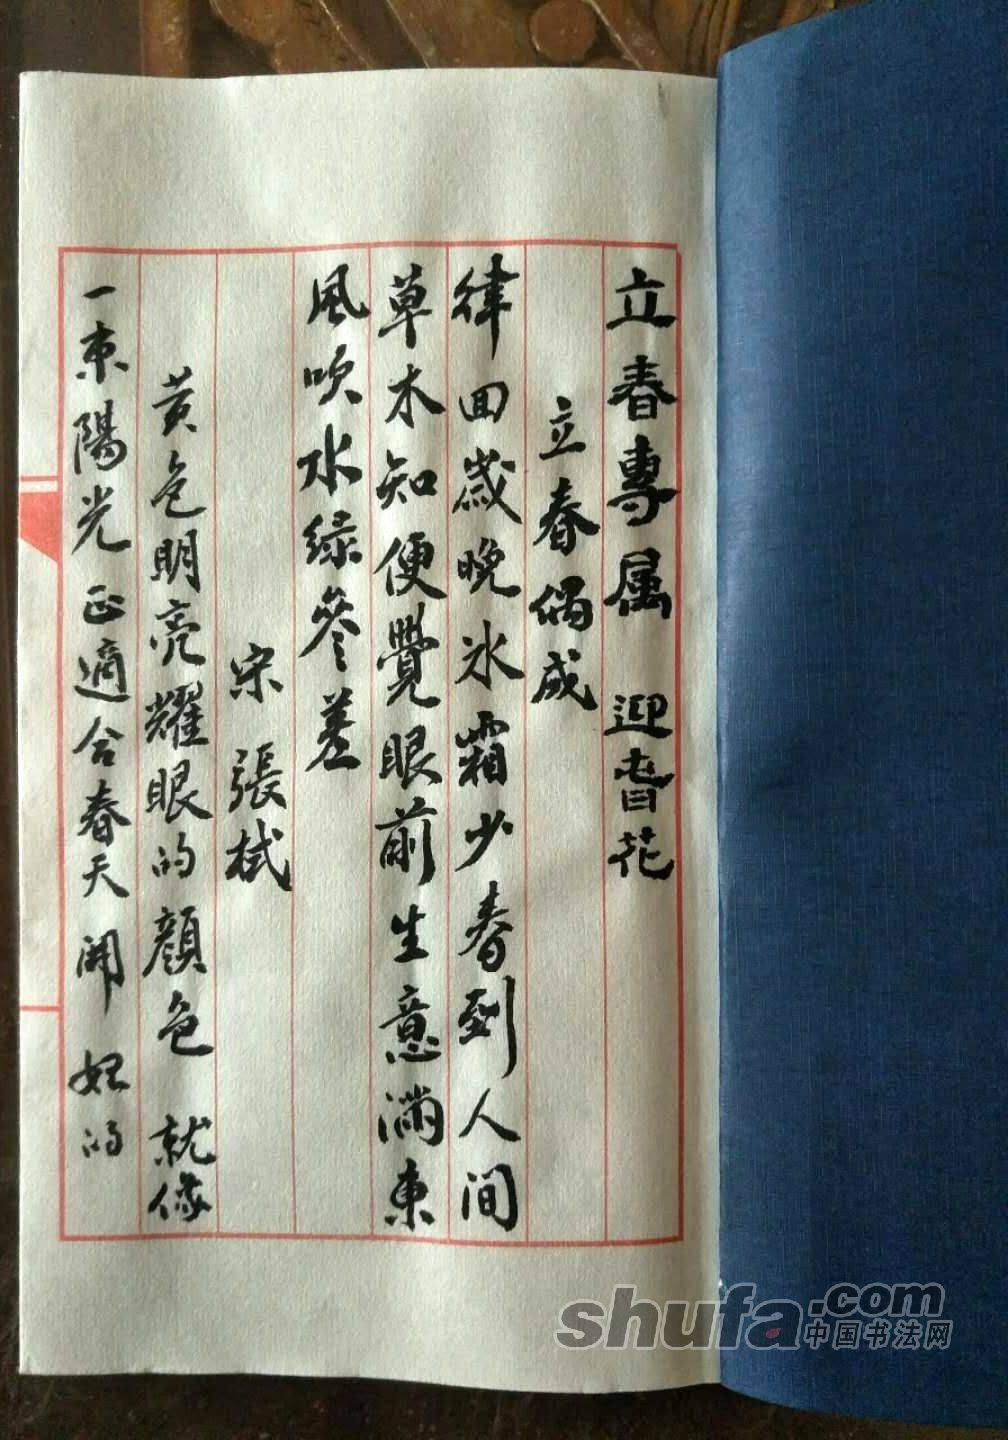 立春專属 迎春花
立春偶成
律回歲晚氷霜少春到人间
草木知便覺眼前生意满東
風吹水绿參差
宋 張栻
黄色明亮耀眼的顔色 就像
一束陽光正適合春天開 她的
shufa.com
中国书法网